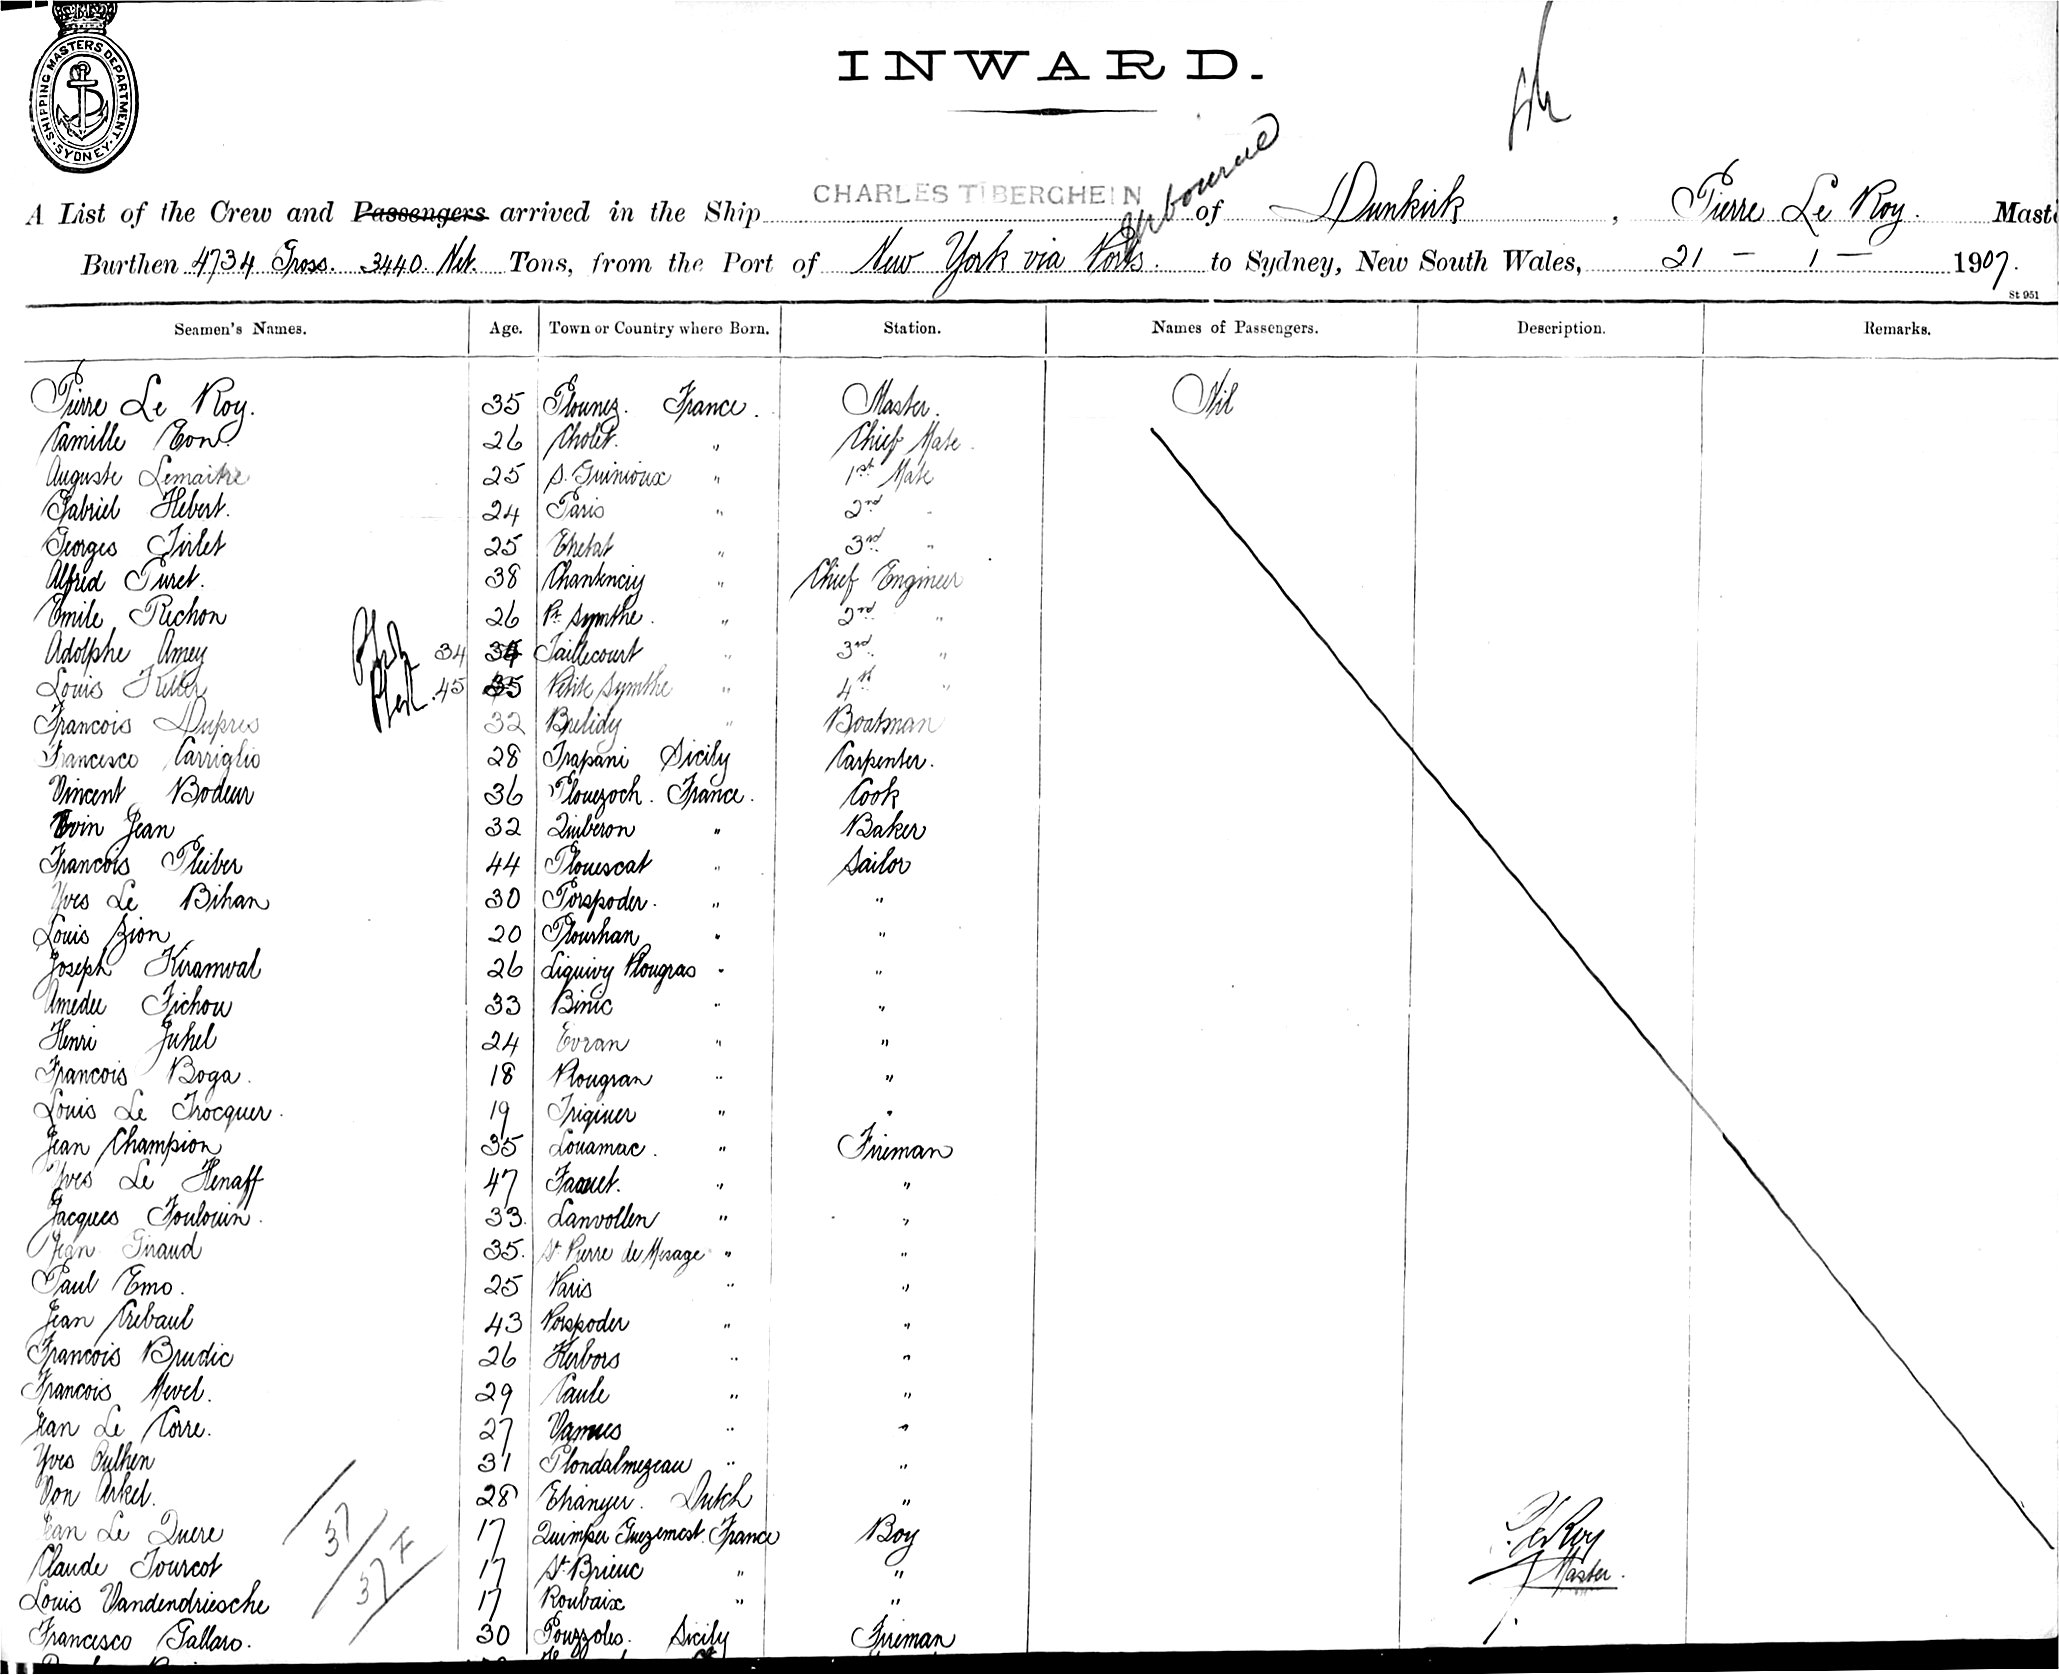 SHIPPING MASTERS DEPARTMENT
SYDNEY
INWARD.
A List of the Crew and Passengers arrived in the Ship CHARLES TIBERGHEIN of Dunkirk, Pierre Le Roy. Maste
Burthen 4734 Gross. 3440. Net. Tons, from the Port of New York via Ports. to Sydney, New South Wales, 21 - 1 - 1907.
St 951
Seamen's Names. Age. Town or Country where Born. Station. Names of Passengers. Description. Remarks.
Pierre Le Roy. 35 Plounez. France. Master. Nil
Camille Eon. 26 Cholet. " Chief Mate.
Auguste Lemaitre 25 S. Guinioux " 1st Mate
Gabriel Hebert. 24 Paris " 2nd "
Georges Tirlet 25 Etretat " 3rd "
Alfred Puret. 38 Chantenay " Chief Engineer
Emile Rechon 26 Pt. Synthe. " 2nd "
Adolphe Amey 34 34 Taillecourt " 3rd "
Louis Keller 45 35 Petite Synthe " 4th "
Francois Dupres 32 Brelidy " Boatman
Francesco Carriglio 28 Trapani Sicily Carpenter.
Vincent Bodeur 36 Plouezoch. France. Cook
Jean 32 Quiberon " Baker
Francois Pleiber 44 Plouescat " Sailor
Yves Le Bihan 30 Porspoder. " "
Louis Zion 20 Plourhan " "
Joseph Keramval 26 Liguivy Plougras " "
Amedee Fichou 33 Binic " "
Henri Juhel 24 Evran " "
Francois Boga. 18 Plougran " "
Louis Le Trocquer. 19 Triguier " "
Jean Champion 35 Louamac. " Fireman
Yves Le Henaff 47 Faouet. " "
Jacques Toulouin. 33. Lanvollen " "
Jean Giraud 35. St. Pierre de Mesage " "
Paul Emo. 25 Paris " "
Jean Trebaul 43 Porspoder " "
Francois Brudic 26 Kerbors " "
Francois Mevel. 29 Paule " "
Jean Le Corre. 27 Vannes " "
Yves Oulhen 31 Plondalmezeau " "
Von Arkel. 28 Etranger. Dutch "
Jean Le Quere 17 Quimper Guezenest. France Boy
Claude Tourcot 17 St. Brieuc " "
Louis Vandendriesche 17 Roubaix " "
Francesco Gallaro. 30 Pouzzoles. Sicily Fireman
37
37 F
P. Le Roy
Master.